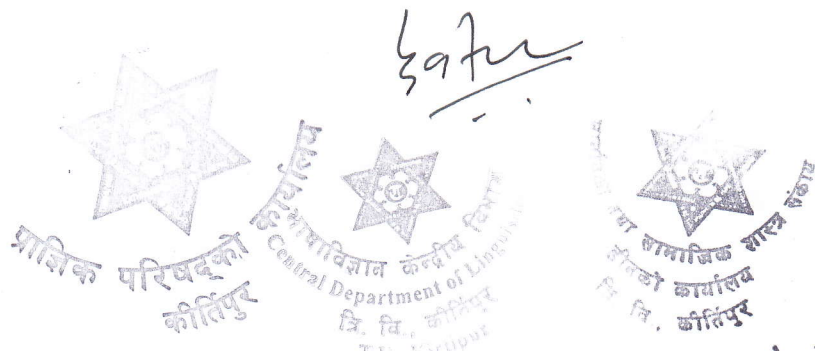 प्राज्ञिक परिषद्को कार्यालय
कीर्तिपुर
भाषाविज्ञान केन्द्रीय विभाग
Central Department of Linguis
त्रि. वि., कीर्तिपुर
T.U., Kirtipur
तथा सामाजिक शास्त्र संकाय
डीनको कार्यालय
त्रि. वि., कीर्तिपुर